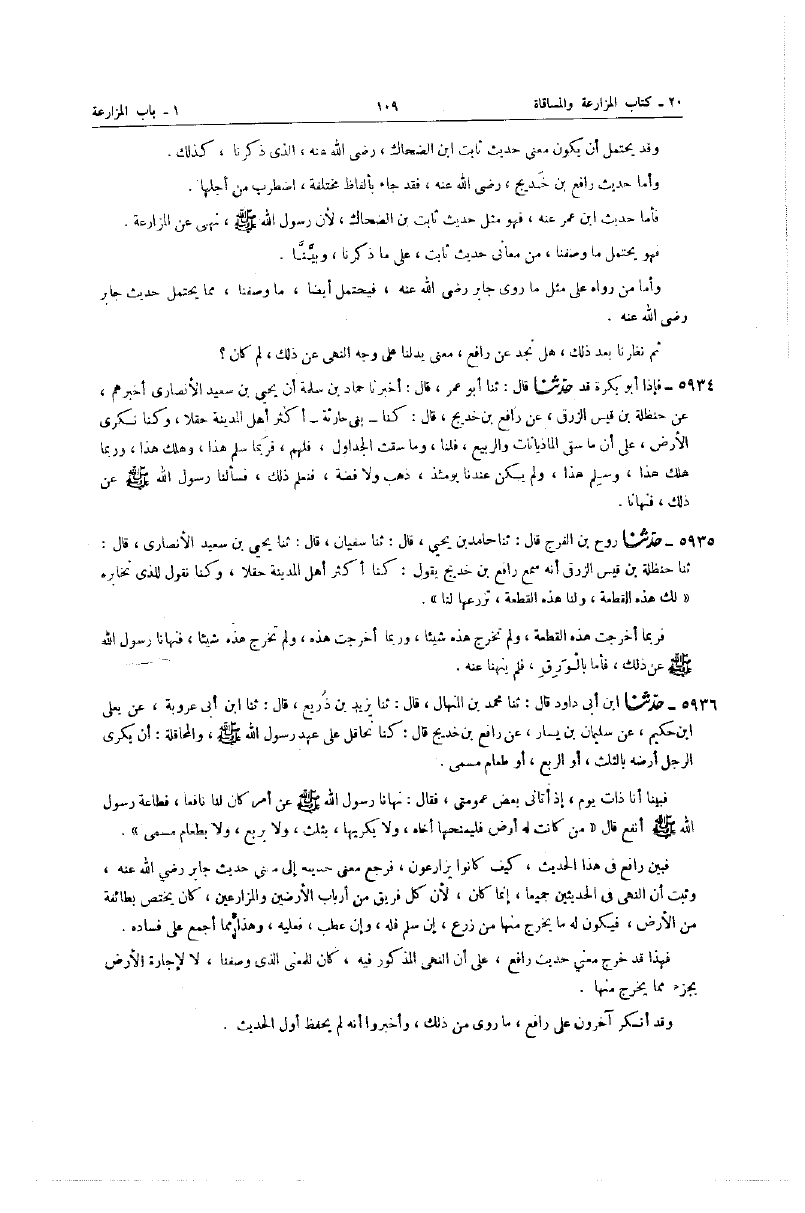 ٢٠ ـ كتاب المزارعة والمساقاة ١٠٩ ١ ـ باب المزارعة
وقد يحتمل أن يكون معنى حديث ثابت ابن الضحاك ، رضى الله عنه ، الذى ذكرنا ، كذلك .
وأما حديث رافع بن خَديج ، رضى الله عنه ، فقد جاء بألفاظ مختلفة ، اضطرب من أجلها .
فأما حديث ابن عمر عنه ، فهو مثل حديث ثابت بن الضحاك ، لأن رسول الله ﷺ ، نهى عن المزارعة .
فهو يحتمل ما وصفنا ، من معانى حديث ثابت ، على ما ذكرنا ، وبيَّنَّا .
وأما من رواه على مثل ما روى جابر رضى الله عنه ، فيحتمل أيضا ، ما وصفنا ، مما يحتمل حديث جابر
رضى الله عنه .
ثم نظرنا بعد ذلك ، هل نجد عن رافع ، معنى يدلنا على وجه النهى عن ذلك ، لم كان ؟
٥٩٣٤ ـ فإذا أبو بكرة قد حدثنا قال : ثنا أبو عمر ، قال : أخبرنا حماد بن سلمة أن يحيى بن سعيد الأنصارى أخبرهم ،
عن حنظلة بن قيس الزرقى ، عن رافع بن خديج ، قال : كنا ـ بنى حارثة ـ أكثر أهل المدينة حقلا ، وكنا نكرى
الأرض ، على أن ما سقى الماذيانات والربيع ، فلنا ، وما سقت الجداول ، فلهم ، فربما سلم هذا ، وهلك هذا ، وربما
هلك هذا ، وسلِم هذا ، ولم يكن عندنا يومئذ ، ذهب ولا فضة ، فنعلم ذلك ، فسألنا رسول الله ﷺ عن
ذلك ، فنهانا .
٥٩٣٥ ـ حدثنا روح بن الفرج قال : ثنا حامد بن يحيى ، قال : ثنا سفيان ، قال : ثنا يحيى بن سعيد الأنصارى ، قال :
ثنا حنظلة بن قيس الزرقى أنه سمع رافع بن خديج يقول : كنا أكثر أهل المدينة حقلا ، وكنا نقول للذى نخابره
« لك هذه القطعة ، ولنا هذه القطعة ، تزرعها لنا » .
فربما أخرجت هذه القطعة ، ولم تخرج هذه شيئا ، وربما أخرجت هذه ، ولم تخرج هذه شيئا ، فنهانا رسول الله
ﷺ عن ذلك ، فأما بالْوَرِقِ ، فلم ينهنا عنه .
٥٩٣٦ ـ حدثنا ابن أبى داود قال : ثنا محمد بن المنهال ، قال : ثنا يزيد بن زُريع ، قال : ثنا ابن أبى عروبة ، عن يعلى
ابن حكيم ، عن سليمان بن يسار ، عن رافع بن خديج قال : كنا نحاقل على عهد رسول الله ﷺ ، والمحاقلة : أن يكرى
الرجل أرضه بالثلث ، أو الربع ، أو طعام مسمى .
فبينا أنا ذات يوم ، إذ أتانى بعض عمومتى ، فقال : نهانا رسول الله ﷺ عن أمر كان لنا نافعا ، فطاعة رسول
الله ﷺ أنفع قال « من كانت له أرض فليمنحها أخاه ، ولا يكريها ، بثلث ، ولا بربع ، ولا بطعام مسمى » .
فبين رافع فى هذا الحديث ، كيف كانوا يزارعون ، فرجع معنى حديثه إلى معنى حديث جابر رضي الله عنه ،
وثبت أن النهى فى الحديثين جميعا ، إنما كان ، لأن كل فريق من أرباب الأرضين والمزارعين ، كان يختص بطائفة
من الأرض ، فيكون له ما يخرج منها من زرع ، إن سلم فله ، وإن عطب ، فعليه ، وهذا مما أجمع على فساده .
فهذا قد خرج معني حديث رافع ، على أن النهى المذكور فيه ، كان للمعنى الذى وصفنا ، لا لإجارة الأرض
بجزء مما يخرج منها .
وقد أنكر آخرون على رافع ، ما روى من ذلك ، وأخبروا أنه لم يحفظ أول الحديث .